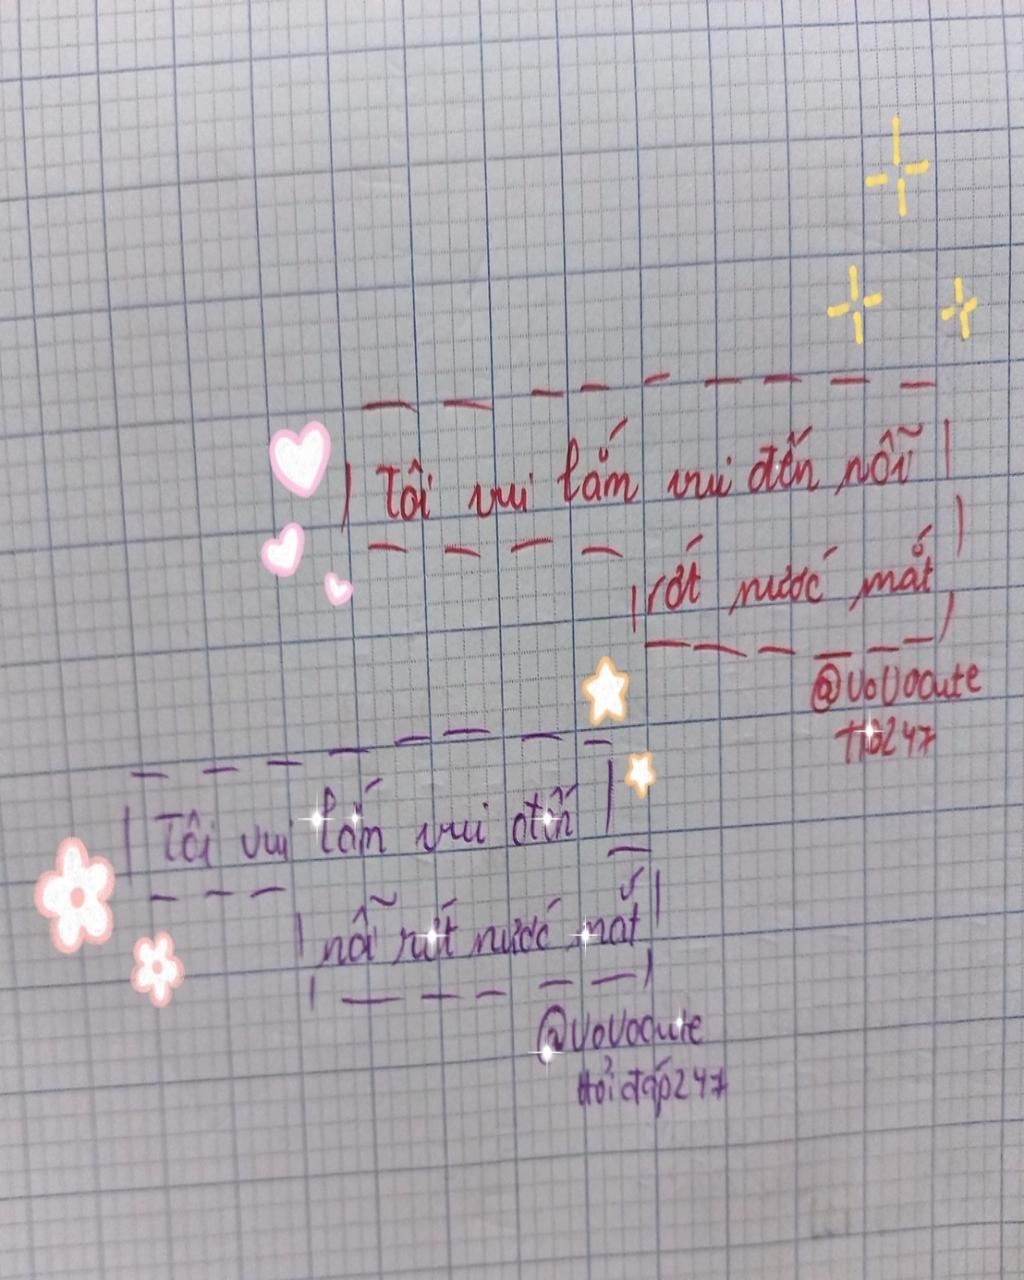 Tôi vui lắm vui đến nỗi
rớt nước mắt
@VoVocute
Tôi vui lắm vui đến
nỗi rớt nước mắt
@VoVocute
Hỏiđáp247